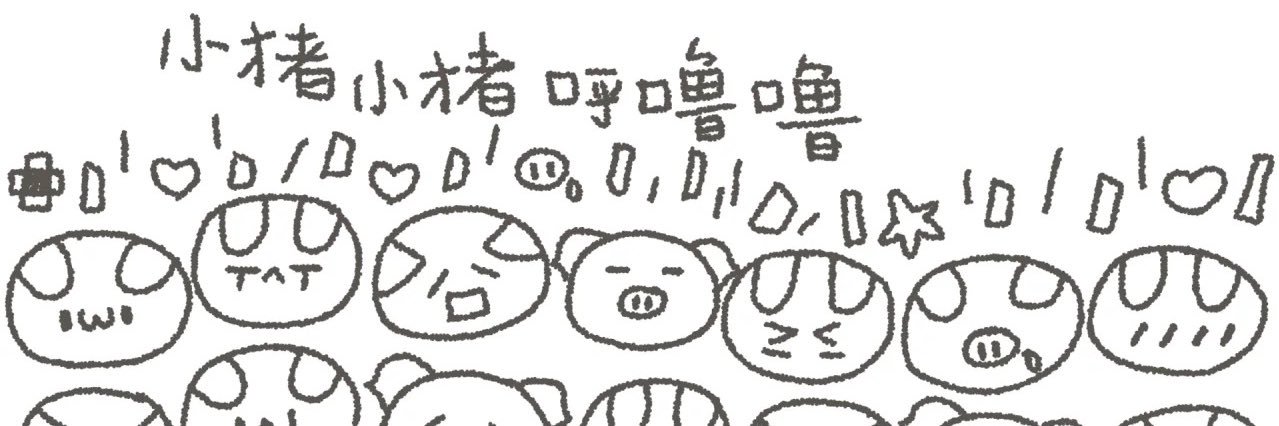 小猪小猪呼噜噜